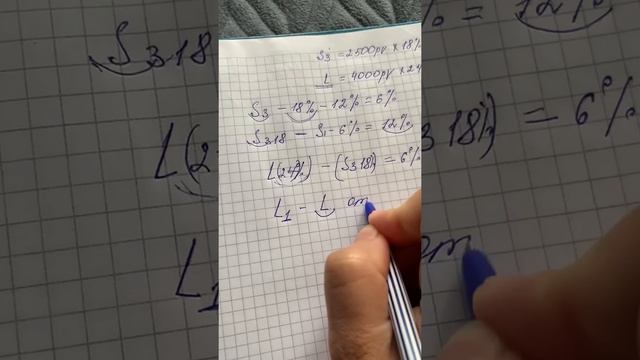 S3 = 2500pv × 18%
L = 4000pv × 24
S3 - 18% - 12% = 6%
S318 - S1 - 6% = 12%
L(24%) - (S318%) = 6%
L1 - L от